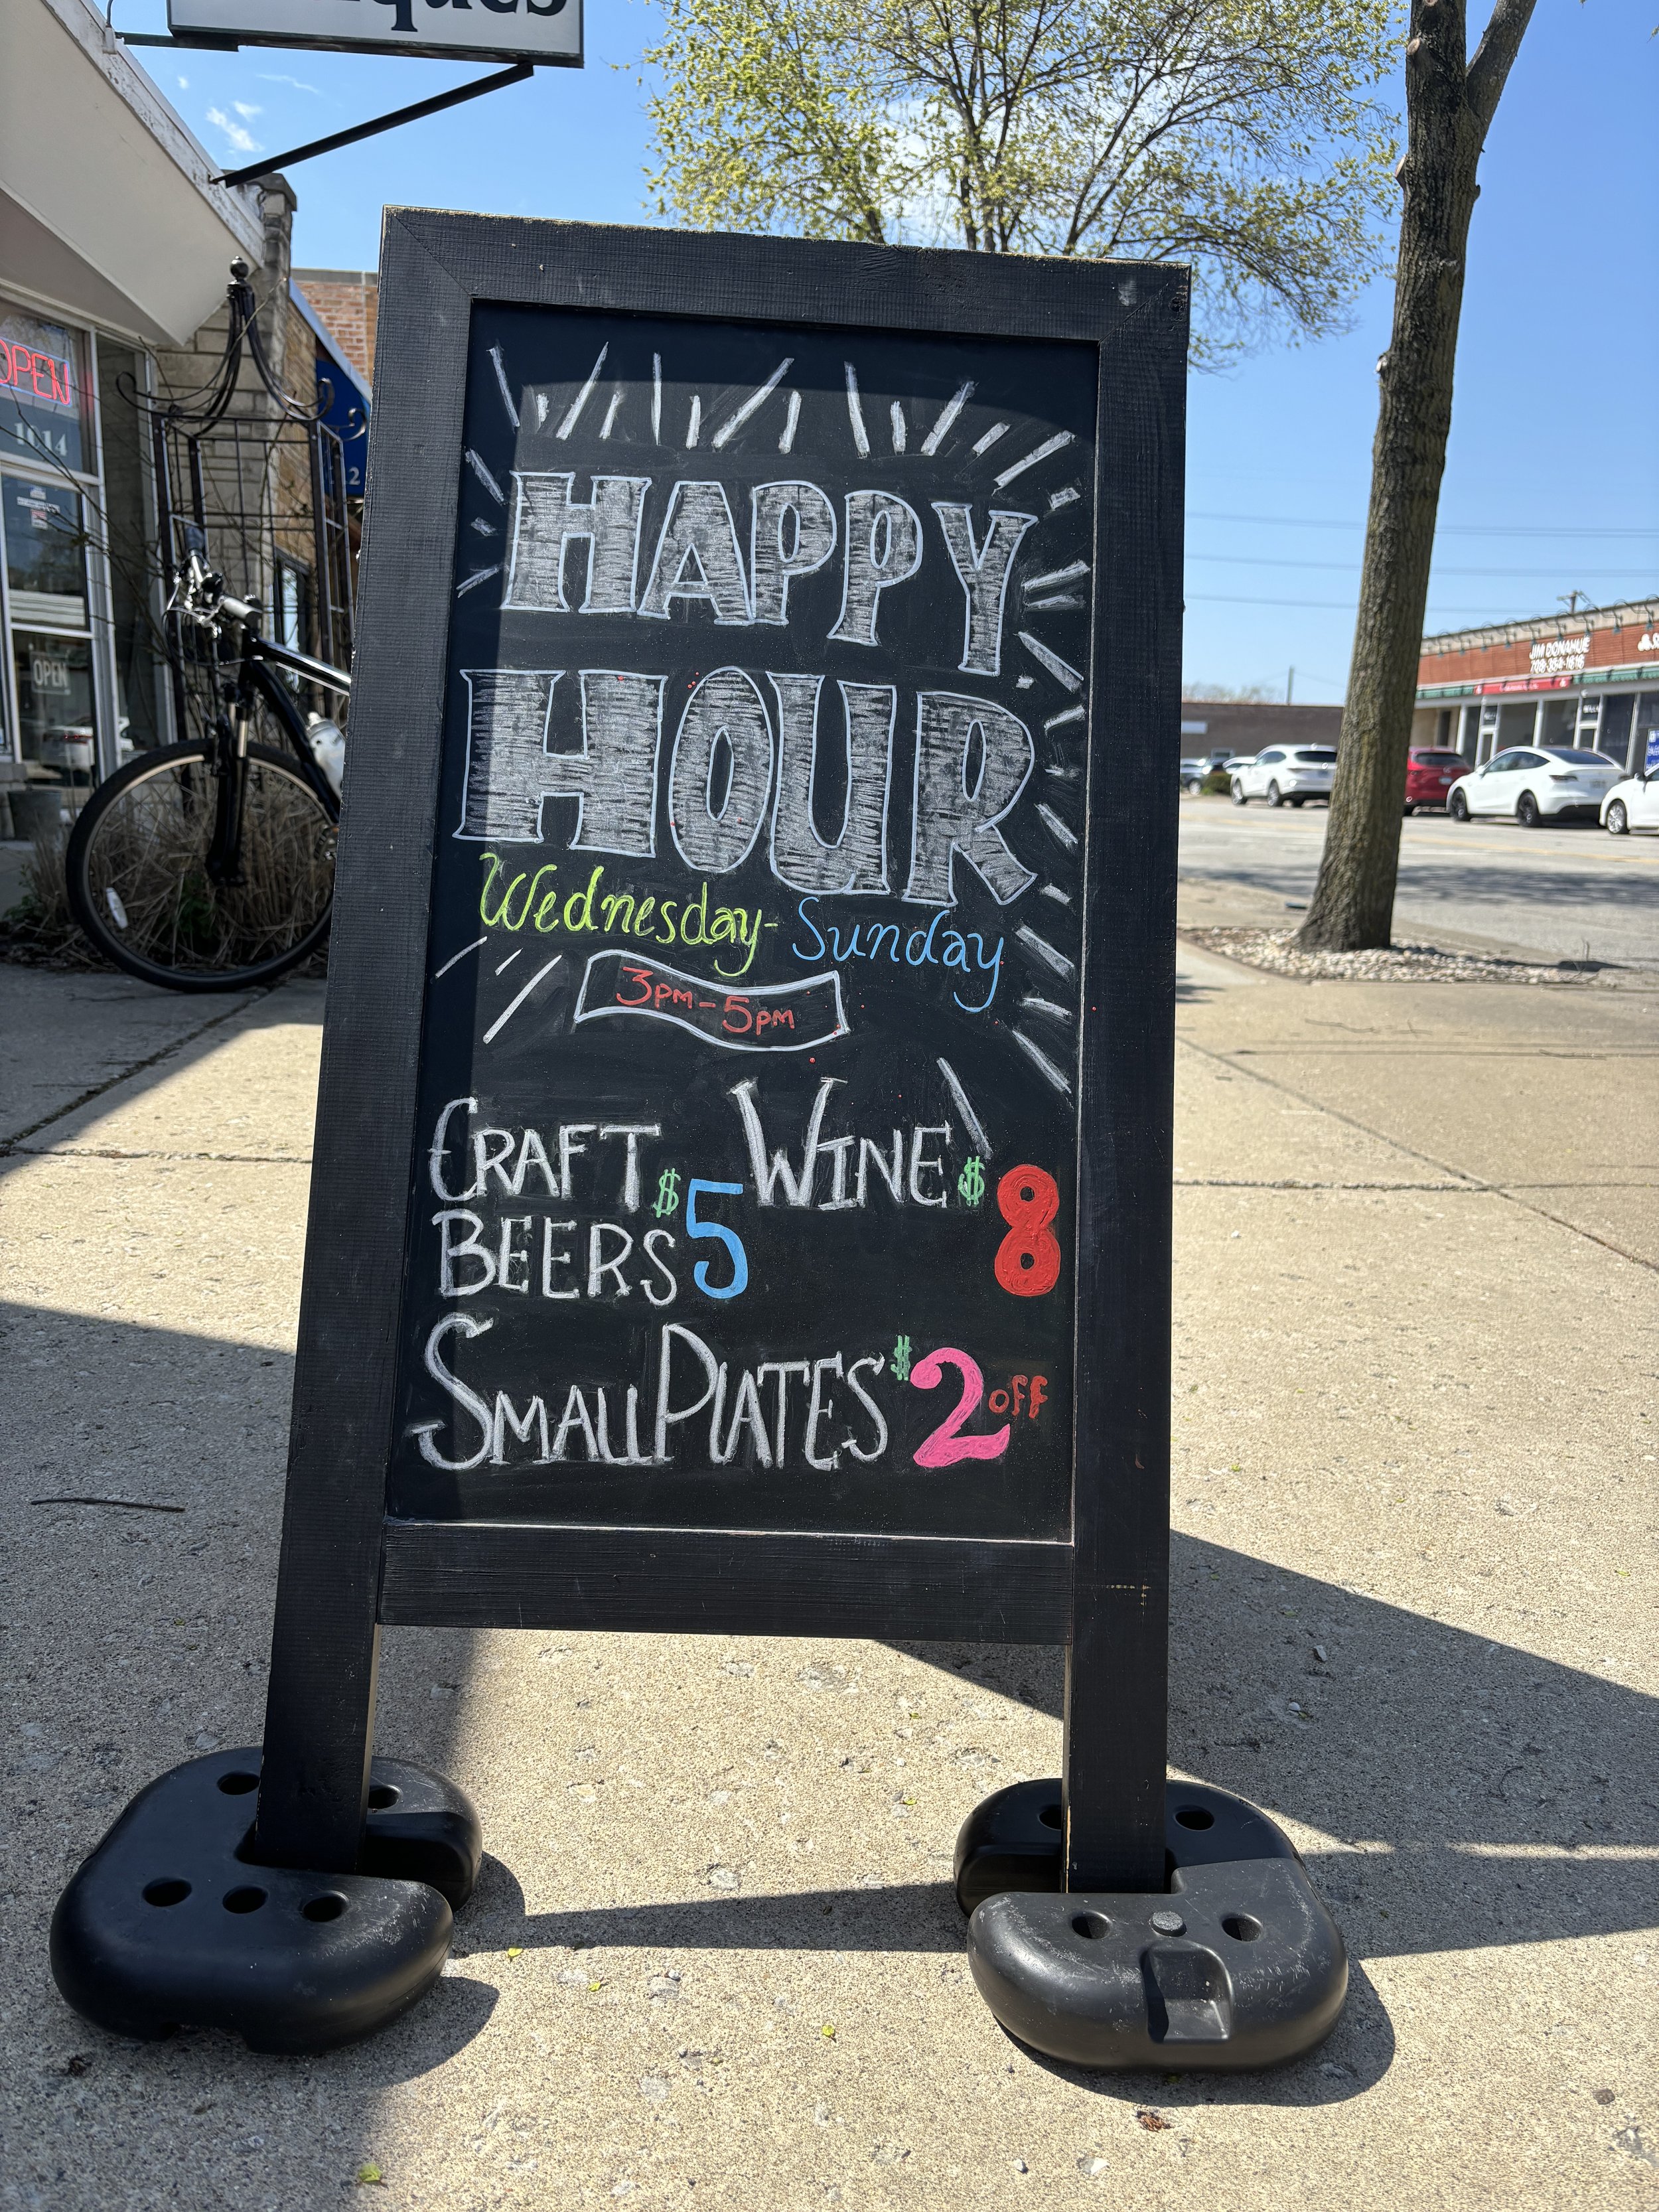 OPEN
1114
OPEN
HAPPY
HOUR
Wednesday- Sunday
3PM-5PM
CRAFT
BEERS $5
WINE $8
SMALL PLATES $2 OFF
JIM DONAHUE